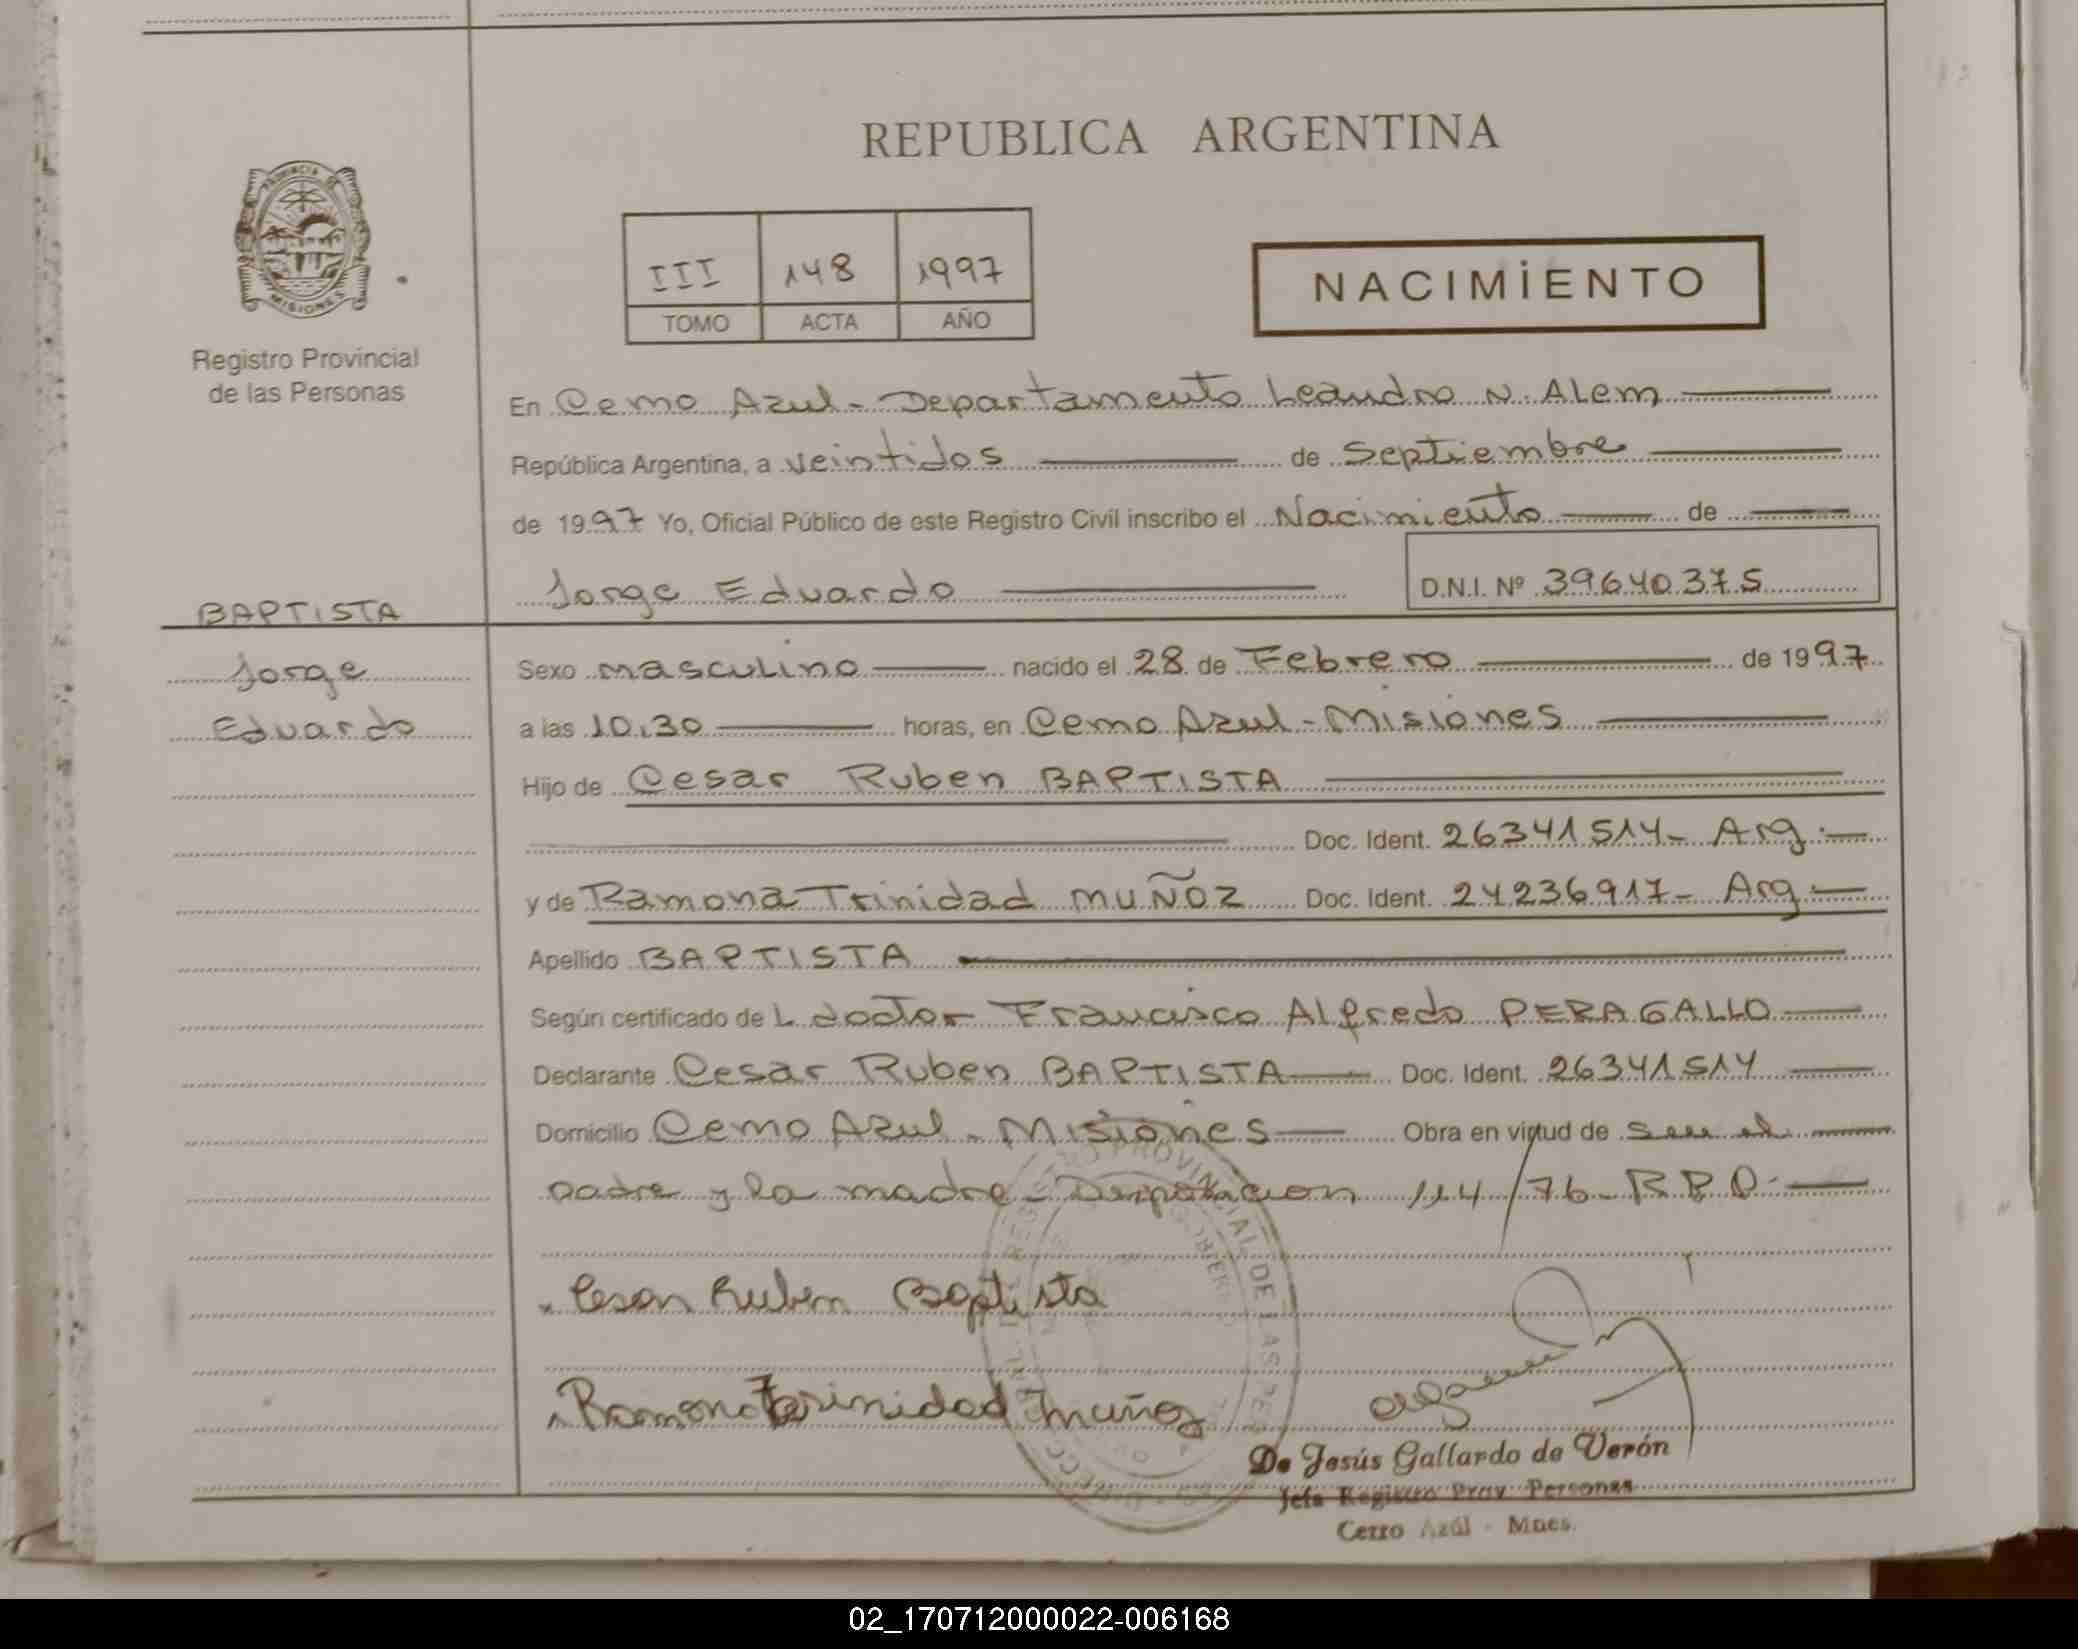 REPUBLICA ARGENTINA
PROVINCIA DE
MISIONES
Registro Provincial
de las Personas
III 148 1997
TOMO ACTA AÑO
NACIMIENTO
En Cerro Azul - Departamento Leandro N. Alem
República Argentina, a veintidos de Septiembre
de 1997 Yo, Oficial Público de este Registro Civil inscribo el Nacimiento de
Jorge Eduardo D.N.I. Nº 39640375
BAPTISTA
Jorge
Eduardo
Sexo masculino nacido el 28 de Febrero de 1997
a las 10,30 horas, en Cerro Azul - Misiones
Hijo de Cesar Ruben BAPTISTA
Doc. Ident. 26341514 - Arg.
y de Ramona Trinidad MUÑOZ Doc. Ident. 24236917 - Arg.
Apellido BAPTISTA
Según certificado de L doctor Francisco Alfredo PERAGALLO
Declarante Cesar Ruben BAPTISTA Doc. Ident. 26341514
Domicilio Cerro Azul - Misiones Obra en virtud de ser el
padre y la madre - 114/76 - R.P.P.
Cesar Ruben Baptista
Ramona Trinidad Muñoz
De Jesús Gallardo de Verón
Jefa Registro Prov. Personas
Cerro Azúl - Mnes.
02_170712000022-006168